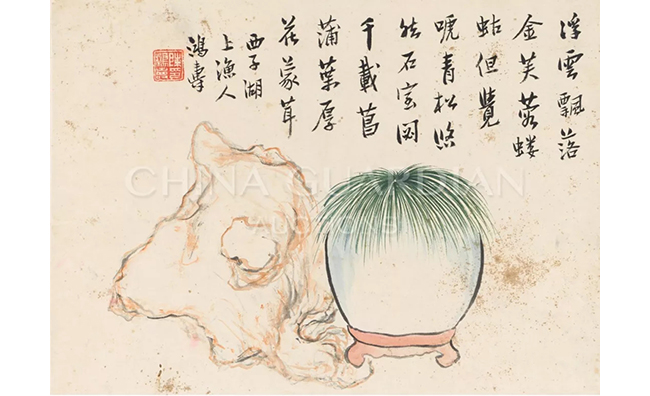 浮雲飄落
金芙蓉螻
蛄但覺
唬青松悠
然石室
千載菖
蒲葉厚
花蒙茸
西子湖
上漁人
鴻壽
CHINA GUARDIAN
AUCTIONS